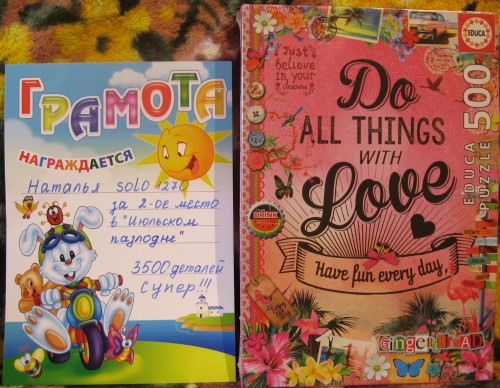 ГРАМОТА
НАГРАЖДАЕТСЯ
Наталья solo1270
за 2-ое место
в "Июльском
пазлодне"
3500 деталей
Супер!!!
EDUCA
Just
believe
in your
dreams
Do
ALL THINGS
WITH
Love
Have fun every day
EDUCA
PUZZLE 500
DRINK
GingerBrEAD